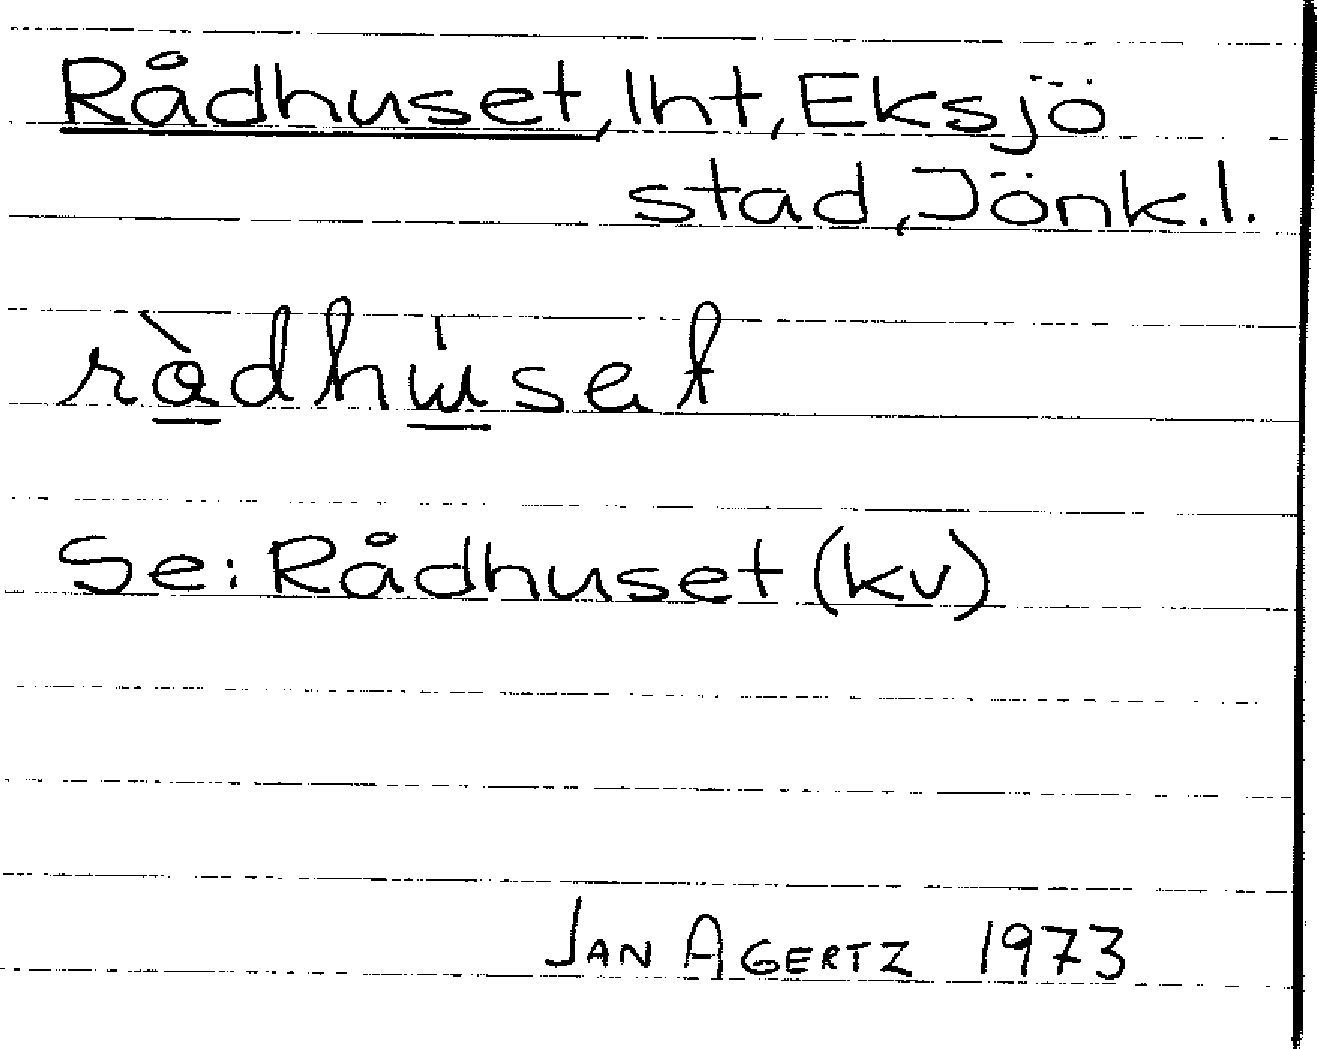 Rådhuset, lht, Eksjö
stad, Jönk.l.
ràdhu̍set
Se: Rådhuset (kv)
JAN AGERTZ 1973